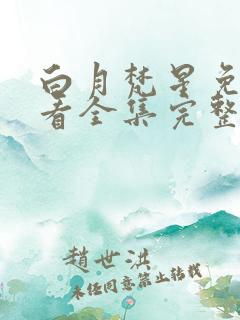 白月梵星免
看全集完整
趙世洪
未经同意禁止转载